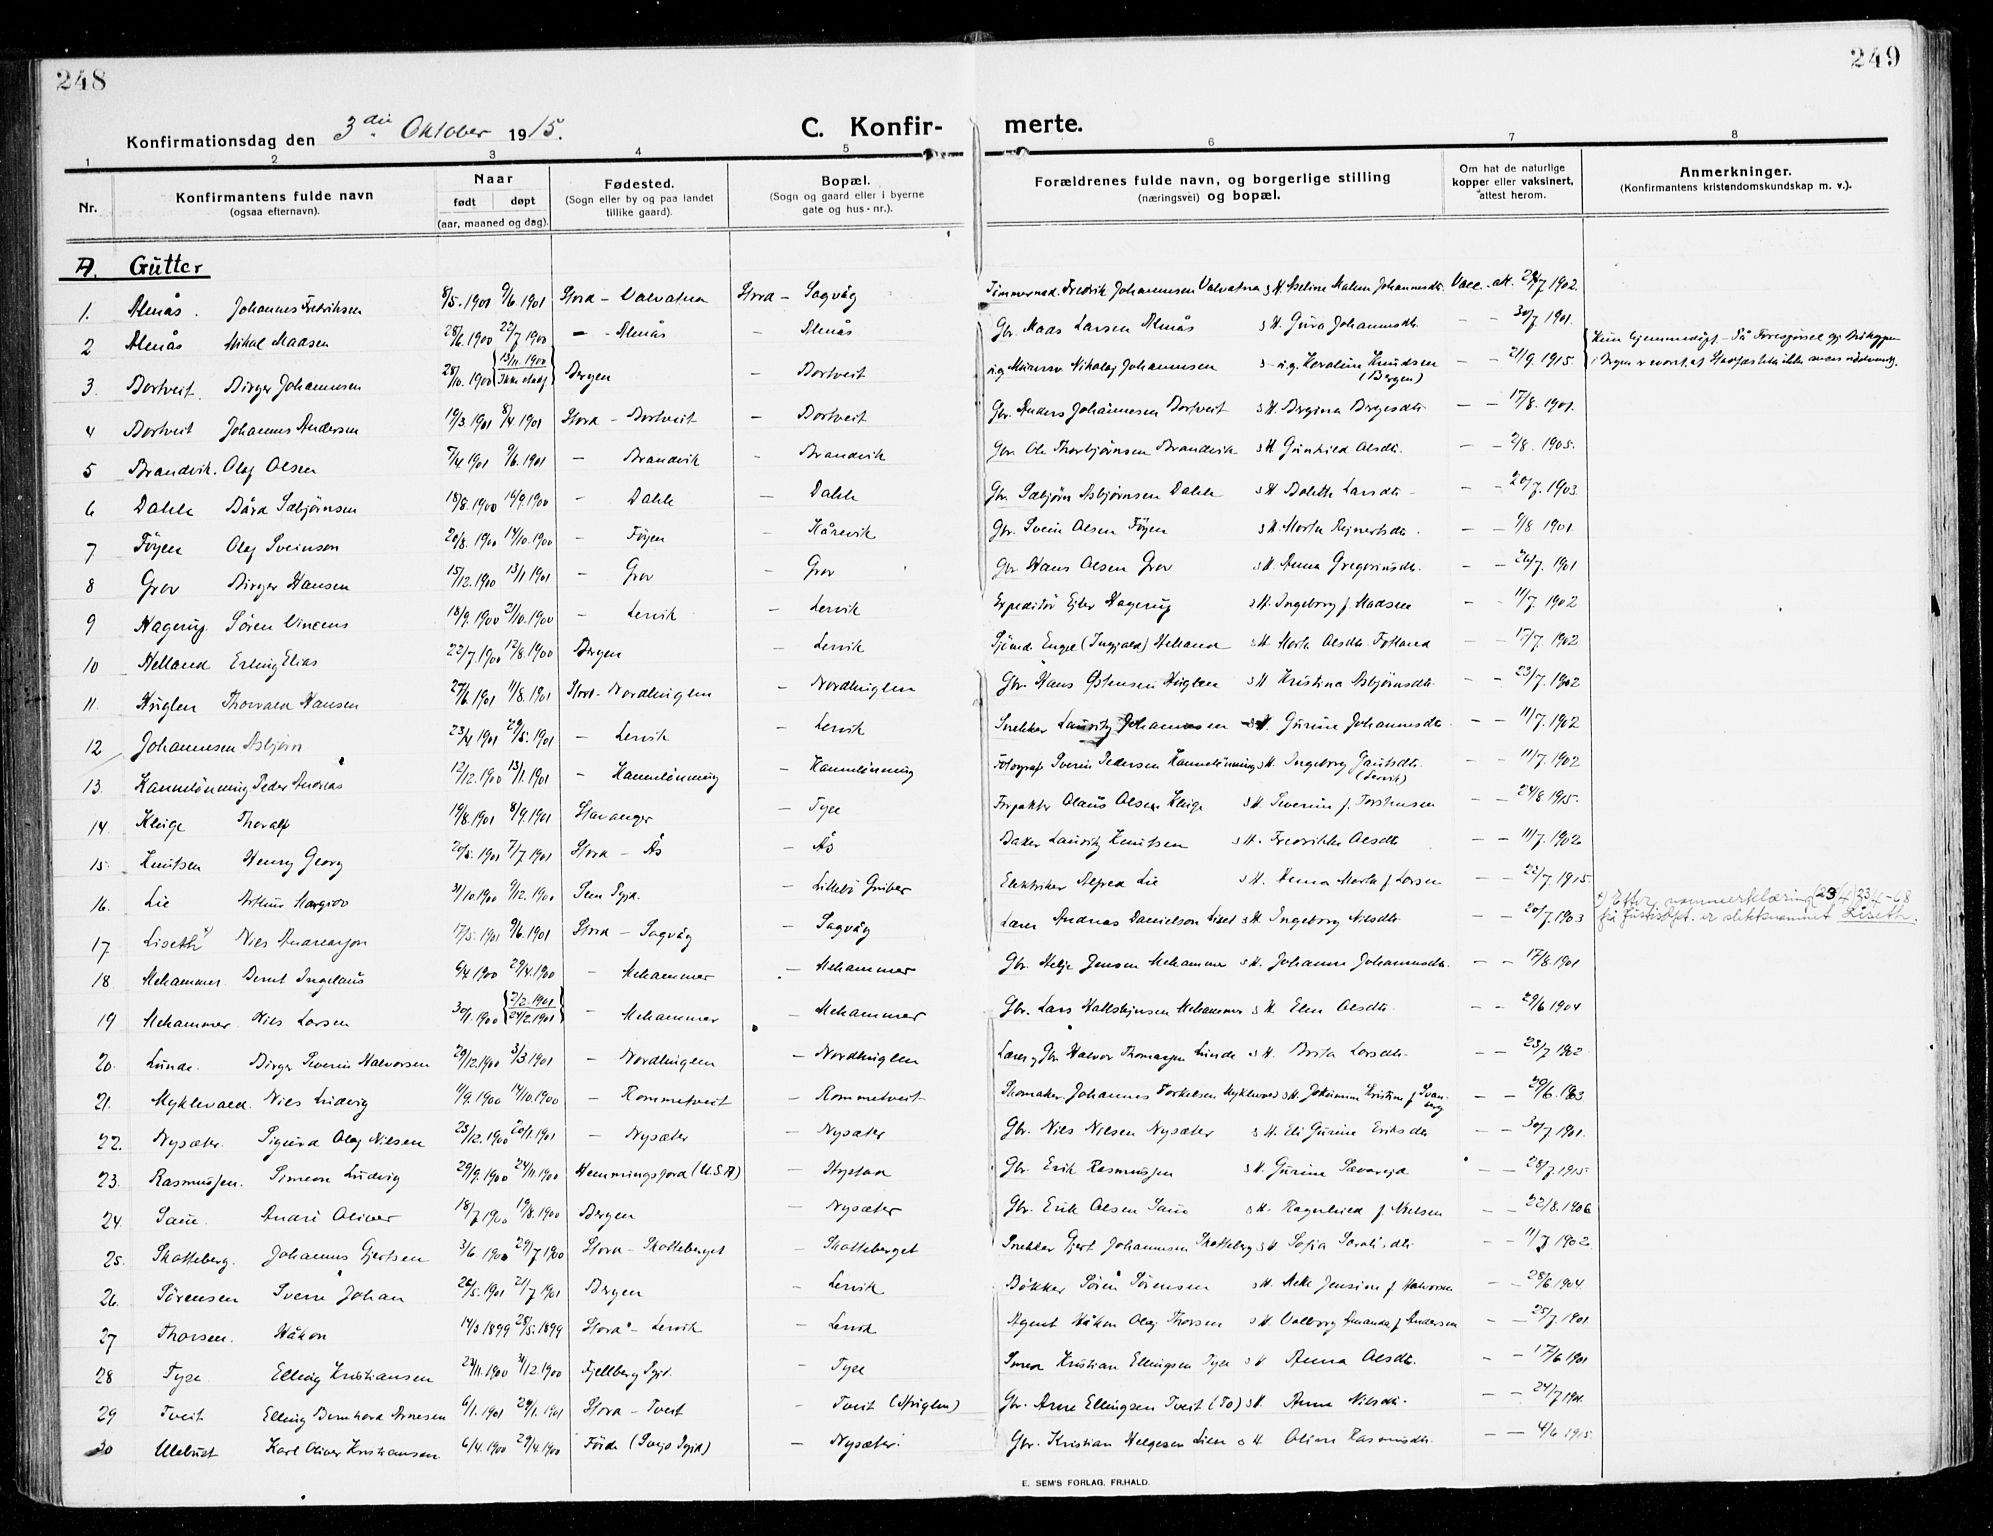 248
249
Konfirmationsdag den 3die Oktober 1915.
C. Konfirmerte.
1 2 3 4 5 6 7 8
Nr.
Konfirmantens fulde navn
(ogsaa efternavn).
Naar
født døpt
(aar, maaned og dag).
Fødested.
(Sogn eller by og paa landet
tillike gaard).
Bopæl.
(Sogn og gaard eller i byerne
gate og hus-nr.).
Forældrenes fulde navn, og borgerlige stilling
(næringsvei) og bopæl.
Om hat de naturlige
kopper eller vaksinert,
attest herom.
Anmerkninger.
(Konfirmantens kristendomskundskap m. v.).
A. Gutter
1. Almås. Johannes Fredriksen 8/5.1901 9/6.1901 Stord – Valvatna Stord – Sagvåg Tømmermd. Fredrik Johannesen Valvatna s H. Aseline Malene Johannesdtr. Vacc. att. 29/7 1902.
2 Almås Mikal Maasen 28/6.1900 22/7 1900 – – Almås – Almås Gbr. Maas Larsen Almås s H. Guro Johannesdtr. – – 30/7 1901.
3 Bortveit. Birger Johannesen 28/10.1900 13/11.1900 Bergen – Bortveit ug. Murersv. Nikolaj Johannesen s – ug. Karoline Knudsen (Bergen) – – 21/9.1915.
4 Bortveit Johannes Andersen 19/3.1901 8/4.1901 Stord – Bortveit – Bortveit Gbr. Anders Johannesen Bortveit s H. Bergina Bergesdtr. – – 17/8.1901.
5 Brandvik. Olaf Olsen 7/4 1901 9/6.1901 – Brandvik – Brandvik Gbr. Ole Thorbjørnsen Brandvik s H. Gunhild Olsdtr. – – 2/8.1905.
6 Dahle Bård Sæbjørnsen 18/8.1900 16/9.1900 – Dahle – Dahle Gbr. Sæbjørn Asbjørnsen Dahle s H. Bolette Larsdtr – – 20/7.1903.
7 Føyen Olaf Sveinson 20/8.1900 14/10.1900 – Føyen – Kårevik Gbr. Svein Olsen Føyen s H. Marta Rejnertsdtr. – – 9/8 1901
8 Grov Birger Hansen 15/12.1900 13/1 1901 – Grov – Grov Gbr Hans Olsen Grov s H. Anna Gregoriusdtr. – – 26/7.1901
9 Hagerup. Sören Vincens 18/9.1900 21/10.1900 – Lervik – Lervik Expeditör Ejler Hagerup s H. Ingeborg f. Madsen – – 11/7.1902
10 Helland Erling Elias 22/7.1900 12/8.1900 Bergen – Lervik Sjömd. Engel (Ingjald) Helland s H. Marta Olsdtr. Totland – – 17/7.1902
11. Huglen Thorvald Hansen 27/6.1901 11/8.1901 Stord – Nordhuglen – Nordhuglen Gbr. Hans Östensen Huglen s H Kristina Asbjørnsdtr. – – 23/7.1902
12 Johannesen Asbjørn 23/4 1901 29/5.1901 – Lervik – Lervik Snekker Lauritz Johannesen s H. Gurine Johannesdtr – – 11/7.1902
13. Hannelönning Peder Andreas 12/12.1900 13/1.1901 – Hannelönning – Hannelönning Fotograf Sverin Pedersen Hannelönning s H. Ingeborg Gautsdtr. (Lervik) – – 11/7.1902
14. Kluge Thoralf 19/8.1901 8/9.1901 Stavanger – Tyse Forpakter Olaus Olsen Kluge s H Severine f. Torstensen – – 24/8 1915.
15. Knutsen Henry Georg 20/5.1901 7/7 1901 Stord – Ås – Ås Baker Lauritz Knutsen s H. Fredrikke Olsdtr – – 11/7.1902
16. Lie Arthur Margido 31/10.1900 9/12.1900 Sem Pgjd. – Lillebö Gruber Elektriker Alfred Lie s H. Anna Marta f. Larsen – – 22/7.1915.
17. Liseth x) Nils Andreasson 17/5.1901 9/6.1901 Stord – Sagvåg – Sagvåg Lærer Andreas Danielson Liset s H. Ingeborg Nilsdtr. – – 20/7.1903 x) Etter navnerklæring (23/4) 23/4-68 frå Justisdpt. er slektsnamnet Liseth.
18. Mehammer. Bernt Ingelaus 6/4 1900 29/4.1900 – Mehammer – Mehammer Gbr. Helje Jensen Mehammer s H. Johanne Johannesdtr. – – 17/8.1901
19 Mehammer. Nils Larsen 30/1.1900 2/2.1901 24/2.1901 – Mehammer – Mehammer Gbr. Lars Hallsteinsen Mehammer s H. Elen Olsdtr. – – 29/6 1904
20. Lunde. Birger Severin Halvorsen 29/12.1900 3/3.1901 – Nordhuglen – Nordhuglen Lærer og Gbr. Halvor Thomassen Lunde s H. Brita Larsdtr. – – 23/7 1902
21. Myklevold. Nils Ludvig 11/9.1900 14/10.1900 – Rommetveit – Rommetveit Skomaker. Johannes Torkelsen Myklevold s H. Johanna Kristine f Svanberg – – 29/6.1903.
22. Nysæter. Sigurd Olaf Nilsen 23/12.1900 20/1.1901 – Nysæter – Nysæter Gbr. Nils Nilsen Nysæter s H. Eli Gurine Eriksdtr – – 30/7 1901.
23. Rasmussen. Simeon Ludvig 29/9.1900 24/11.1900 Hemmingsfjord (U.S.A) – Hystad Gbr. Erik Rasmussen s H. Gurine Sævareid – – 28/7.1915.
24. Saue. André Oliver 18/7 1900 19/8.1900 Bergen – Nysæter Gbr. Erik Olsen Saue s H. Ragnhild f. Nielsen – – 22/8.1906
25. Skotteberg. Johannes Gjertsen 3/6 1900 29/7 1900 Stord – Skotteberget – Skotteberget Snekker Gjert Johannesen Skotteberg s H Sofia Saralisdtr – – 11/7 1902.
26. Sörensen Sverre Johan 26/5.1901 21/7 1901 Bergen – Lervik Bökker Sören Sörensen s H. Jensine f. Halvorsen – – 28/6 1904.
27 Thorsen. Håkon 14/3 1899 28/5.1899 Stord – Lervik – Lervik Agent Håkon Olaj Thorsen s H. Valborg Amanda f. Andersen – – 25/7.1901.
28 Tyse. Elling Kristiansen 23/11.1900 31/12.1900 Fjellberg Pgjd. – Tyse Smed Kristian Ellingsen Tyse s H Anna Olsdtr. – – 17/6 1901
29 Tveit Elling Bernhard Arnesen 6/1.1901 29/1.1901 Stord – Tveit – Tveit (Huglen) Gbr. Arne Ellingsen Tveit (To) s H. Anna Nilsdtr. – – 24/7 1901.
30 Ullebust Karl Oliver Kristiansen 6/4.1900 29/4.1900 Förde (Svejo Pgjd) – Nysæter. Gbr. Kristian Helgesen Lien s H Oline Rasmusdtr. – – 4/6 1915.
E. SEM'S FORLAG, FR.HALD.